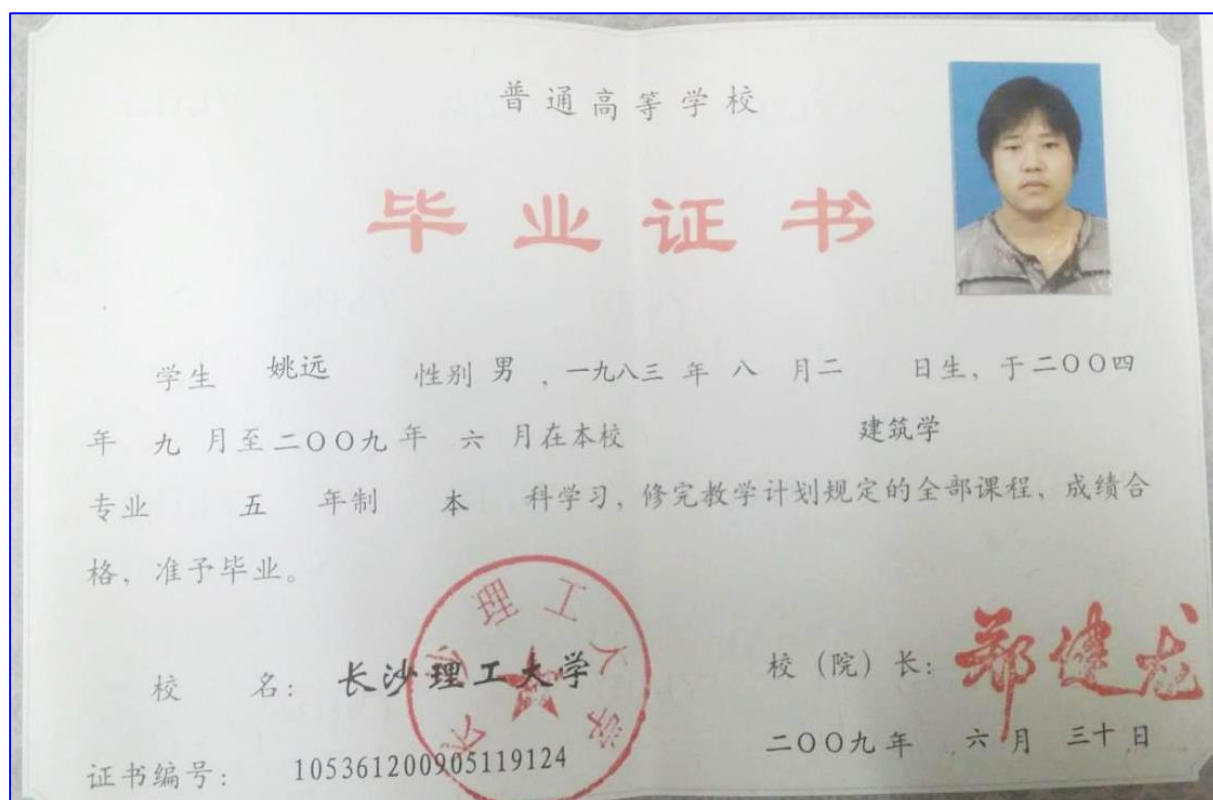 普通高等学校
毕业证书
学生 姚远 性别 男 ，一九八三 年 八 月二 日生，于二〇〇四
年 九 月至二〇〇九年 六 月在本校 建筑学
专业 五 年制 本 科学习，修完教学计划规定的全部课程，成绩合
格，准予毕业。
长沙理工大学
校 名：长沙理工大学 校（院）长：郑健龙
证书编号：105361200905119124 二〇〇九年 六月 三十日